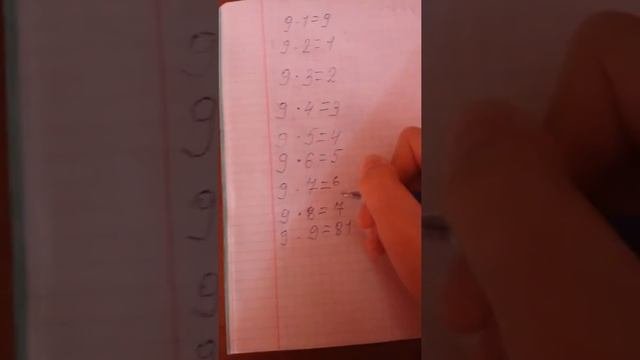 9·1=9
9·2=1
9·3=2
9·4=3
9·5=4
9·6=5
9·7=6
9·8=7
9·9=81